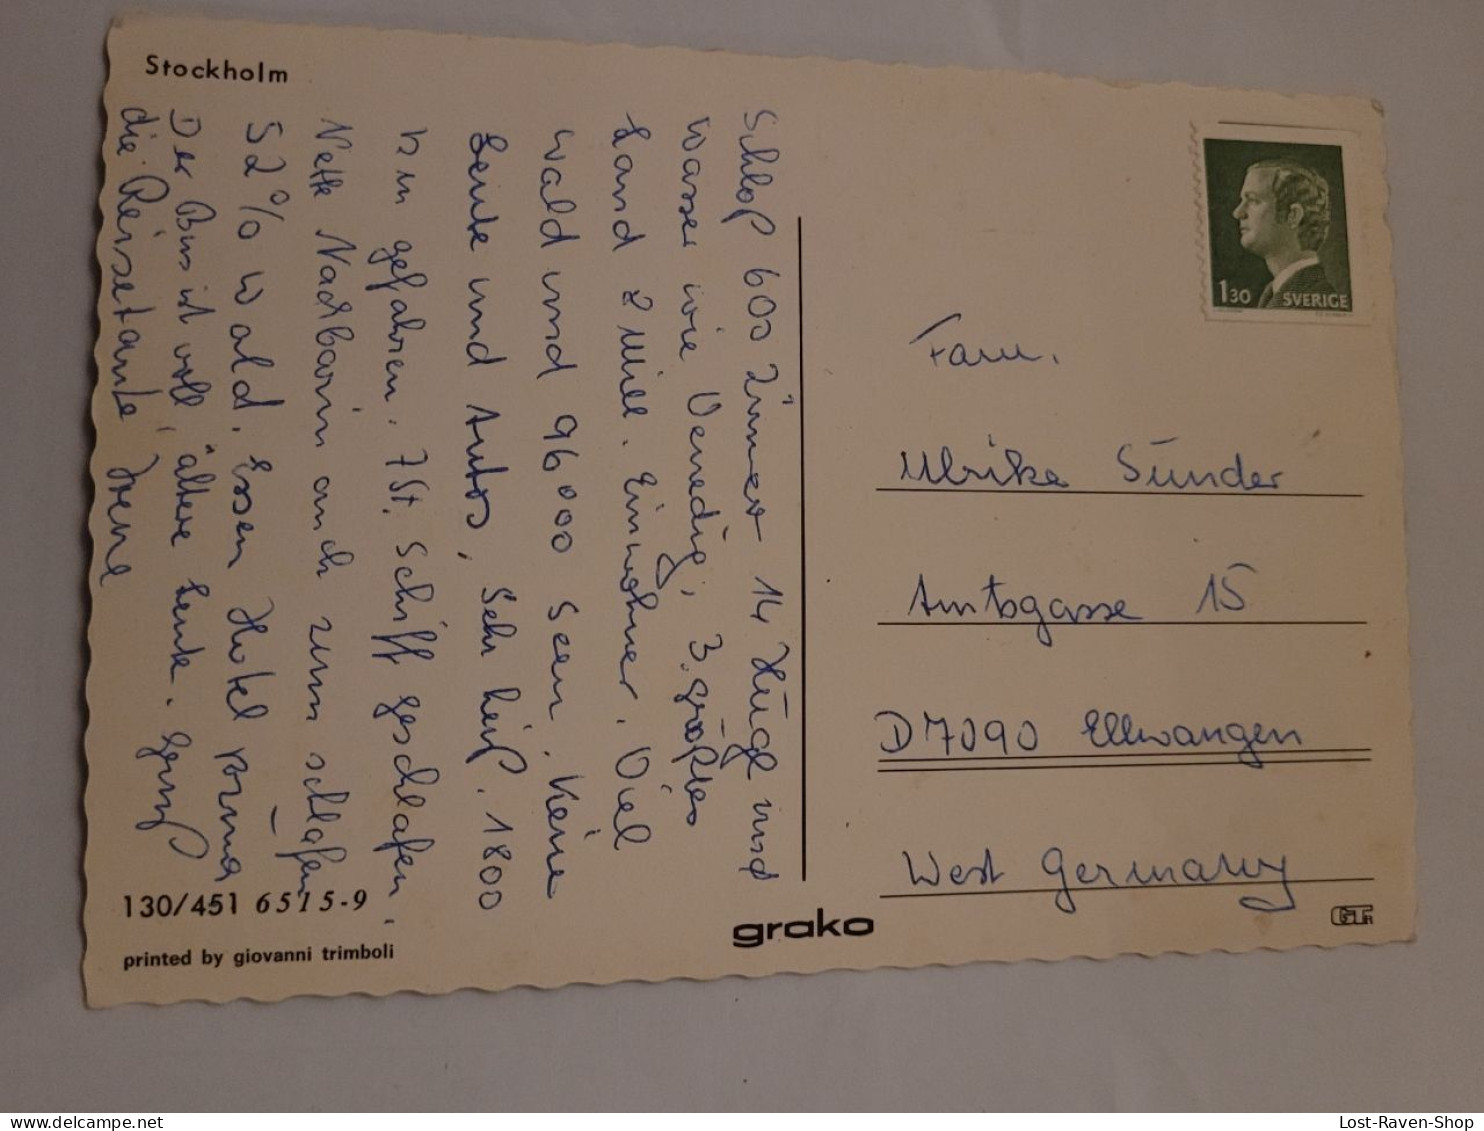 Stockholm
Schloß 600 Zimmer 14 Hügel und
Wasser wie Venedig, 3. größtes
Land 2 Mill. Einwohner. Viel
Wald und 96000 Seen. Keine
Leute und Autos, Sehr heiß. 1800
km gefahren. 7 St. Schiff geschlafen.
Nette Nachbarin auch zum schlafen
52% Wald. Essen Hotel prima
Der Bus ist voll, ältere Leute. Gruß
die Reisetante Irene
1 30 SVERIGE
Fam.
Ulrike Sünder
Amtsgasse 15
D 7090 Ellwangen
West Germany
130/451 6515-9
printed by giovanni trimboli
grako
GT
Lost-Raven-Shop